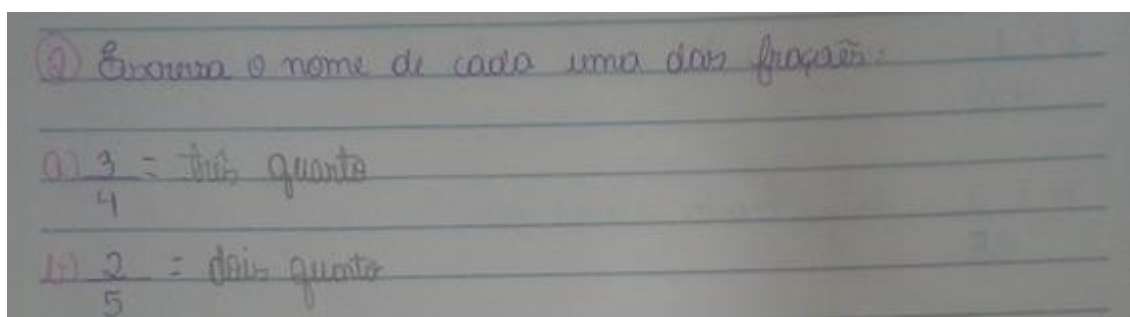 2 Escreva o nome de cada uma das frações:
a) 3/4 = três quanto
b) 2/5 = dois quanto